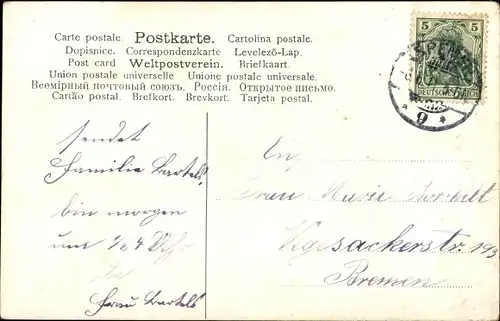 Carte postale. Postkarte. Cartolina postale.
Dopisnice. Correspondenzkarte. Levelező-Lap.
Post card Weltpostverein. Briefkaart.
Union postale universelle Unione postale universale.
Всемірный почтовый союзъ. Россія. Открытое письмо.
Cartão postal. Brefkort. Brevkort. Tarjeta postal.
5 5
DEUTSCHES REICH
* 9 *
sendet
Familie Bartels,
bin morgen
um 1/2 4 Uhr
Frau Bartels
Frau Marie
Vegesackerstr.
Bremen